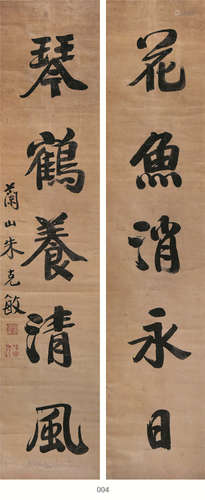 花魚消永日
琴鶴養清風
蘭山朱克敏
004